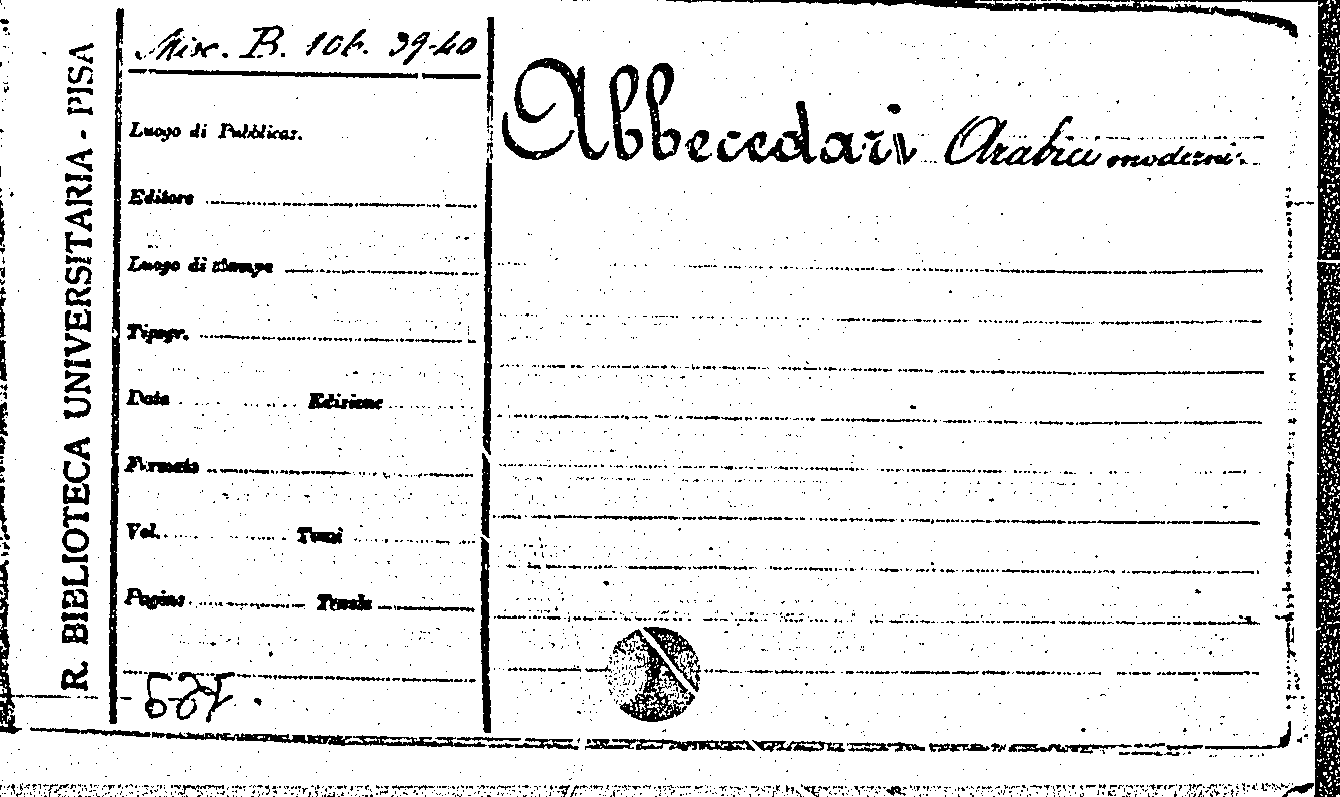 R. BIBLIOTECA UNIVERSITARIA - PISA
Misc. B. 106. 39-40
Luogo di Pubblicaz.
Editore
Luogo di stampa
Tipogr.
Data Edizione
Formato
Vol. Tomi
Pagine Tavole
Abbecedari Arabici moderni.